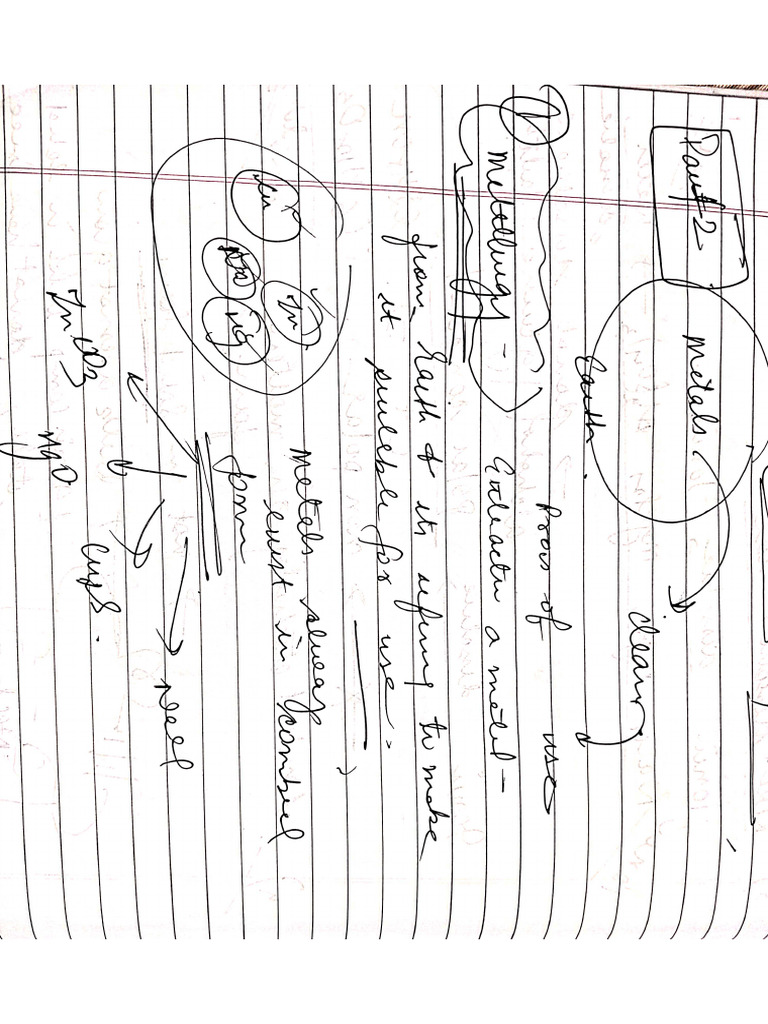 Part 2
metals
Earth.
clean
use
① Metallurgy - Process of
Extractn a metal -
from Earth & its refining to make
it suitable for use.
Metals always
exist in combined
form
Cu
Zn
Mg
Need
ZnCO3
MgO
Cu2S.